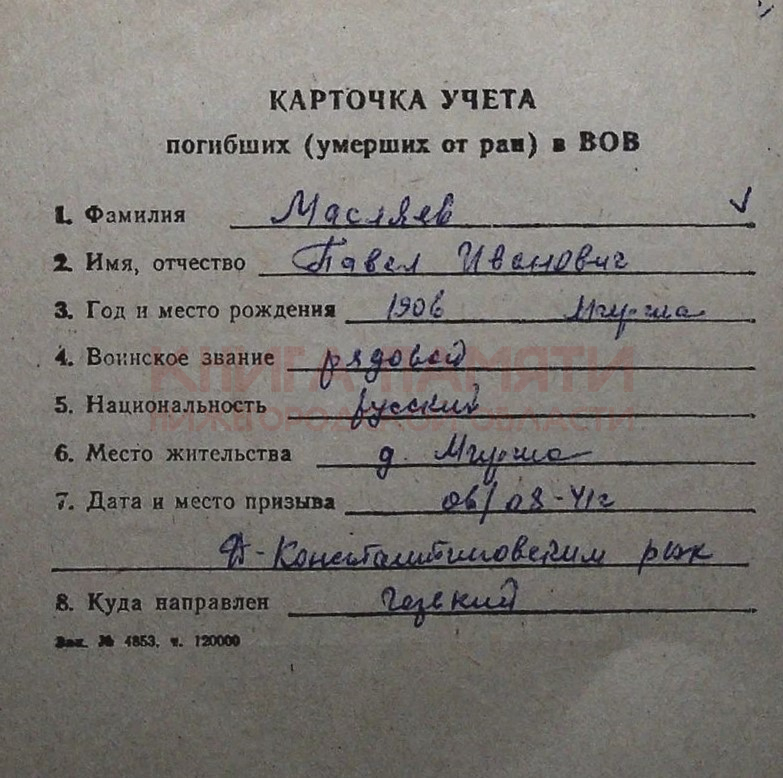 КАРТОЧКА УЧЕТА
погибших (умерших от ран) в ВОВ
1. Фамилия Масляев
2. Имя, отчество Павел Иванович
3. Год и место рождения 1906 Мигуша
4. Воинское звание рядовой
КНИГА ПАМЯТИ
5. Национальность русский
НИЖЕГОРОДСКОЙ ОБЛАСТИ
6. Место жительства д.
7. Дата и место призыва 06/08-41г
Д-Константиновским рвк
8. Куда направлен
Зак. № 4853, т. 120000